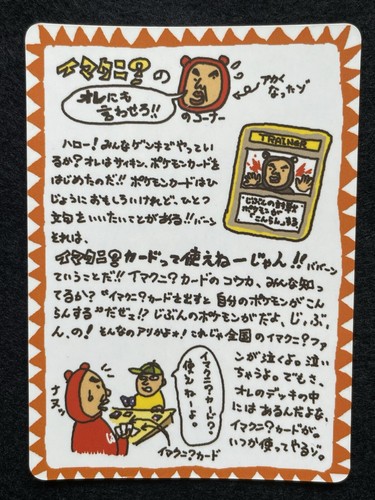 イマクニ?の
オレにも
言わせろ!!
のコーナー
アカく
なったゾ
ハロー!みんなゲンキでやってい
るか?オレはサイキン、ポケモンカードを
はじめたのだ!!ポケモンカードはひ
じょうにおもしろいけれど、ひとつ
文句をいいたいことがある!!ババーン
それは、
TRAINER
じぶんの
ポケモンが
こんらんする
イマクニ?カードって使えねーじゃん!!ババーン
ていうことだ!!イマクニ?カードのコウカ、みんな知っ
てるか?“イマクニ?カードを出すと自分のポケモンがこん
らんする”だぜっ!?じぶんのポケモンがだよ、じ,ぶ,
ん,の!そんなのアリかよォ!これじゃ全国のイマクニ?ファ
ンが泣くよ。泣い
ちゃうよ。でもさ、
オレのデッキの中
にはあるんだよな、
イマクニ?カードが。
いつか使ってやるゾ。
イマクニ?カード?
使えねーよ。
ナヌッ
イマクニ?カード